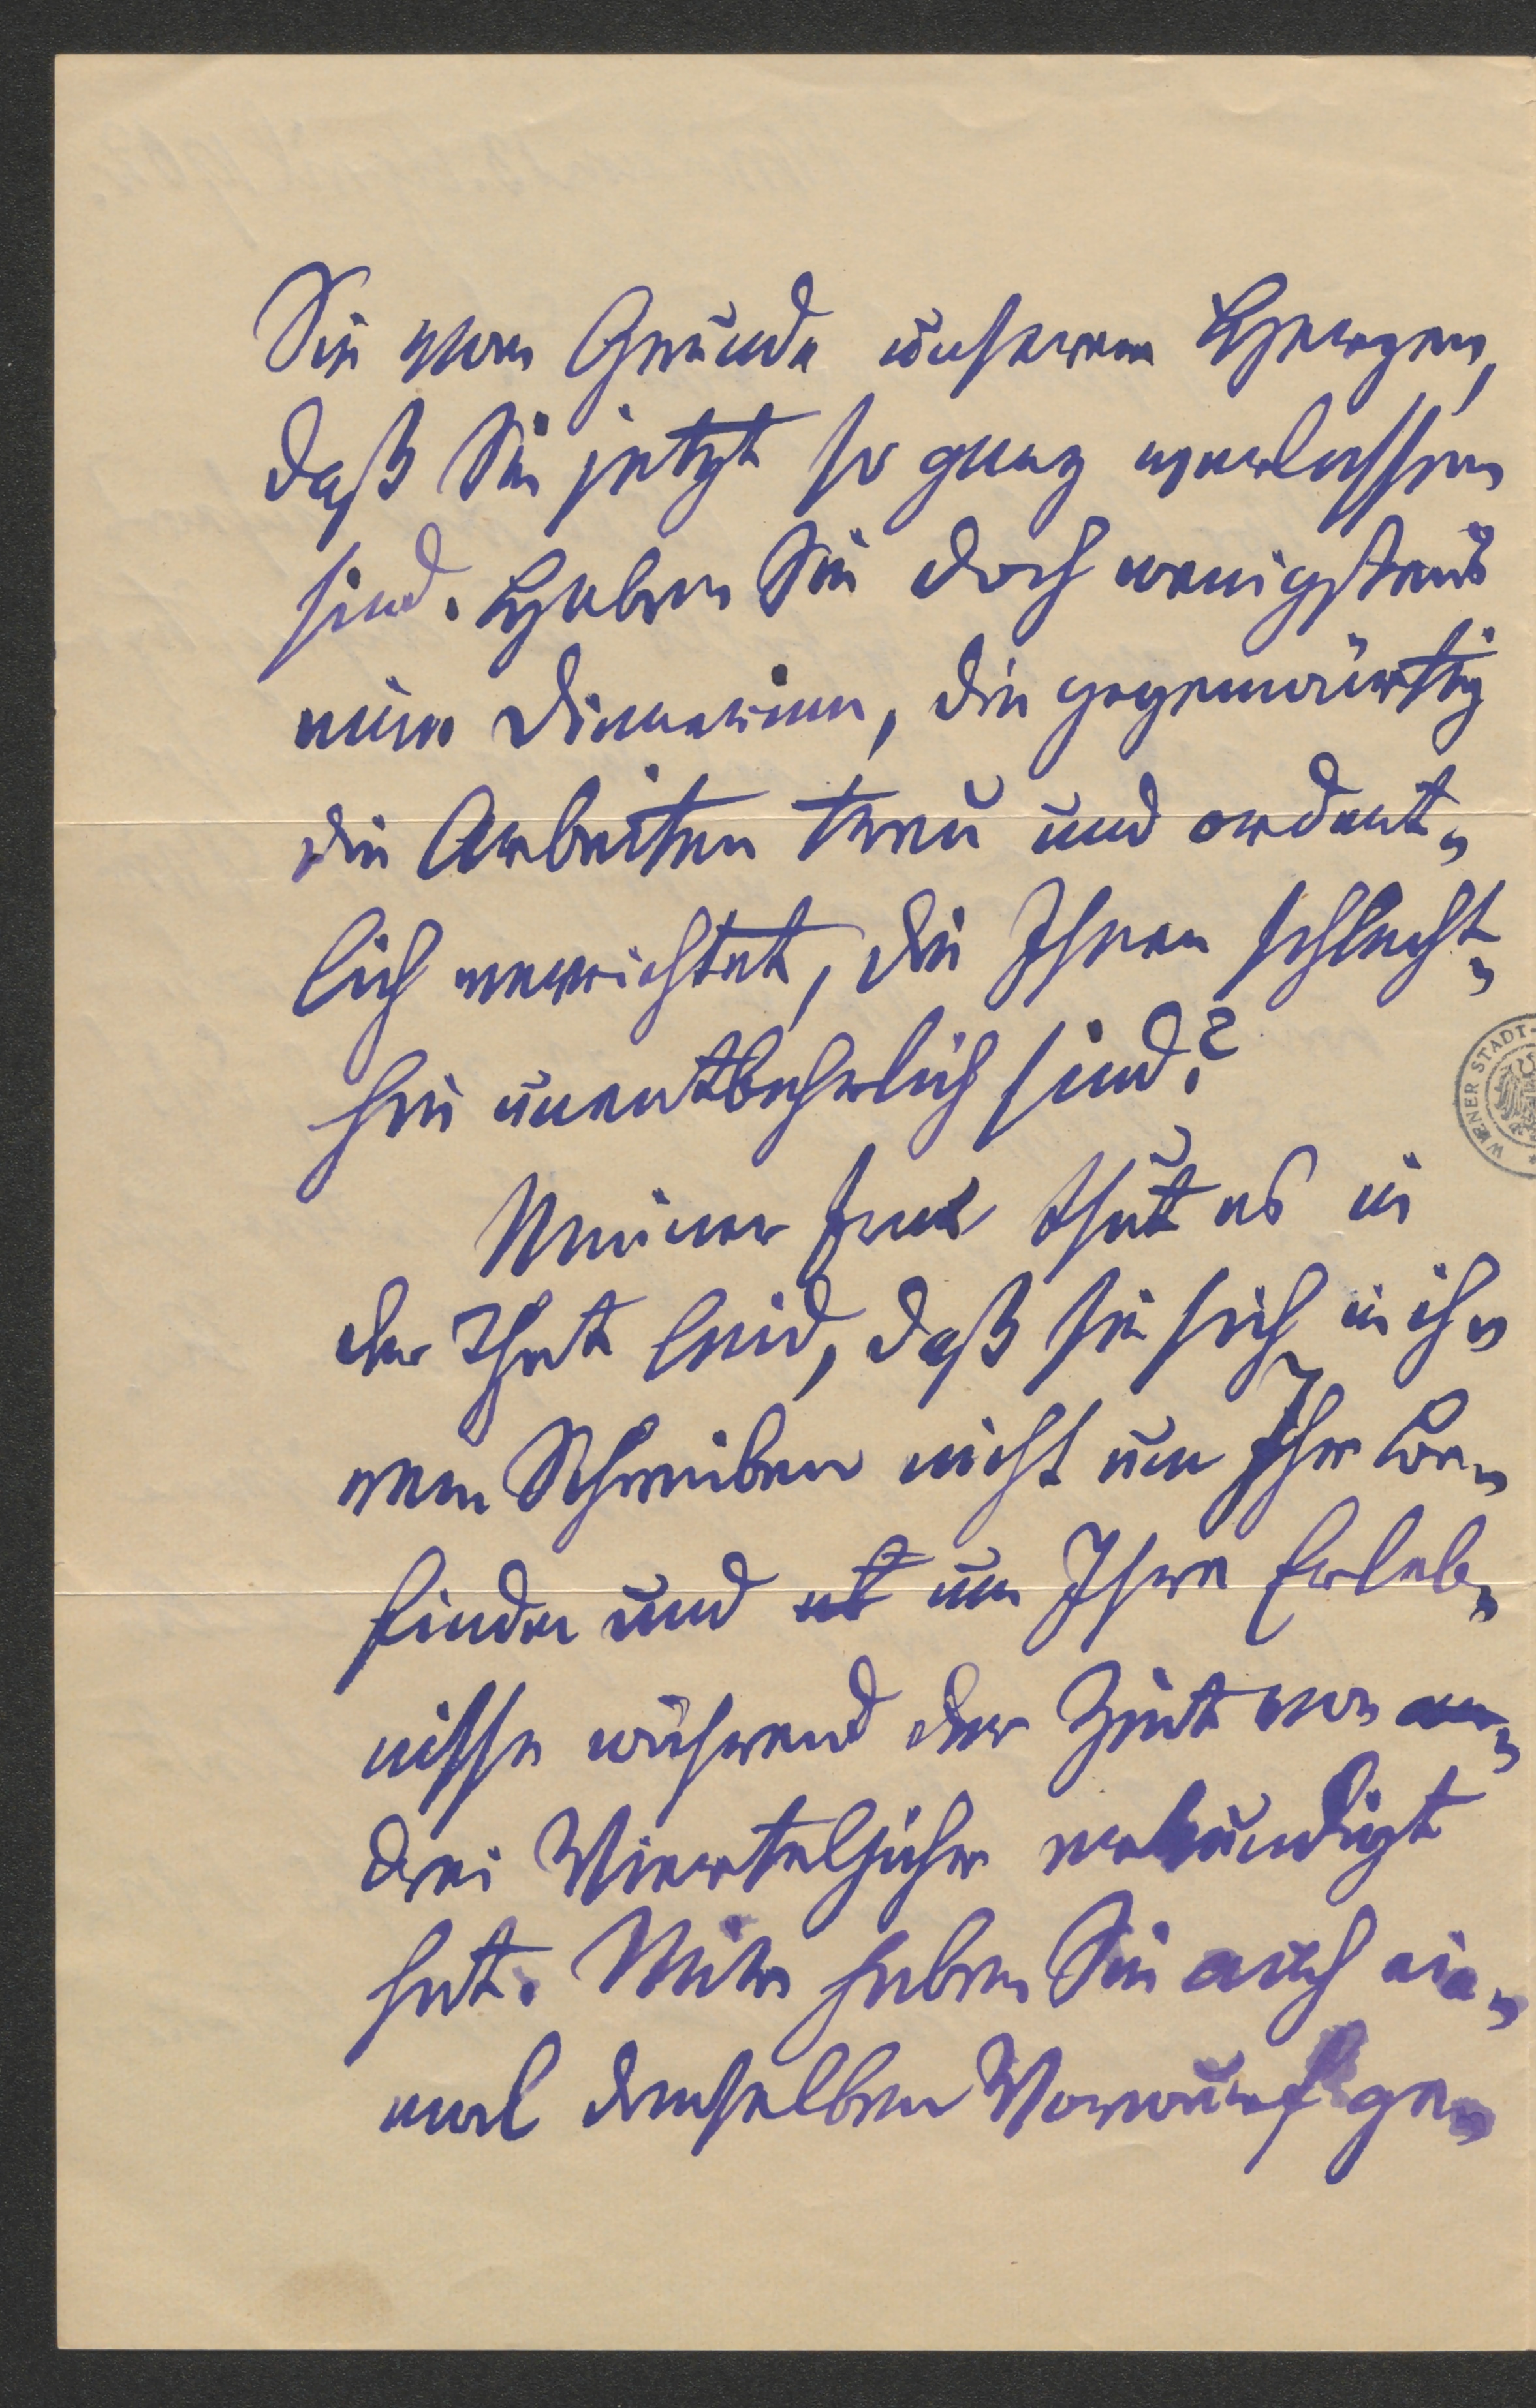 Sie vom Grunde unserer Herzen,
daß Sie jetzt so ganz verlassen
sind. Haben Sie doch wenigstens
eine Dienerinn, die gegenwärtig
die Arbeiten treu und ordent-
lich verrichtet, die Ihnen schlecht-
hin unentbehrlich sind?
Meiner Frau thut es in
der That leid, daß sie sich in ih-
rem Schreiben nicht um Ihr Be-
finden und um Ihre Erleb-
nisse während der Zeit von
drei Vierteljahr erkundigt
hat. Mir haben Sie auch ein-
mal denselben Vorwurf ge-
WIENER STADT-